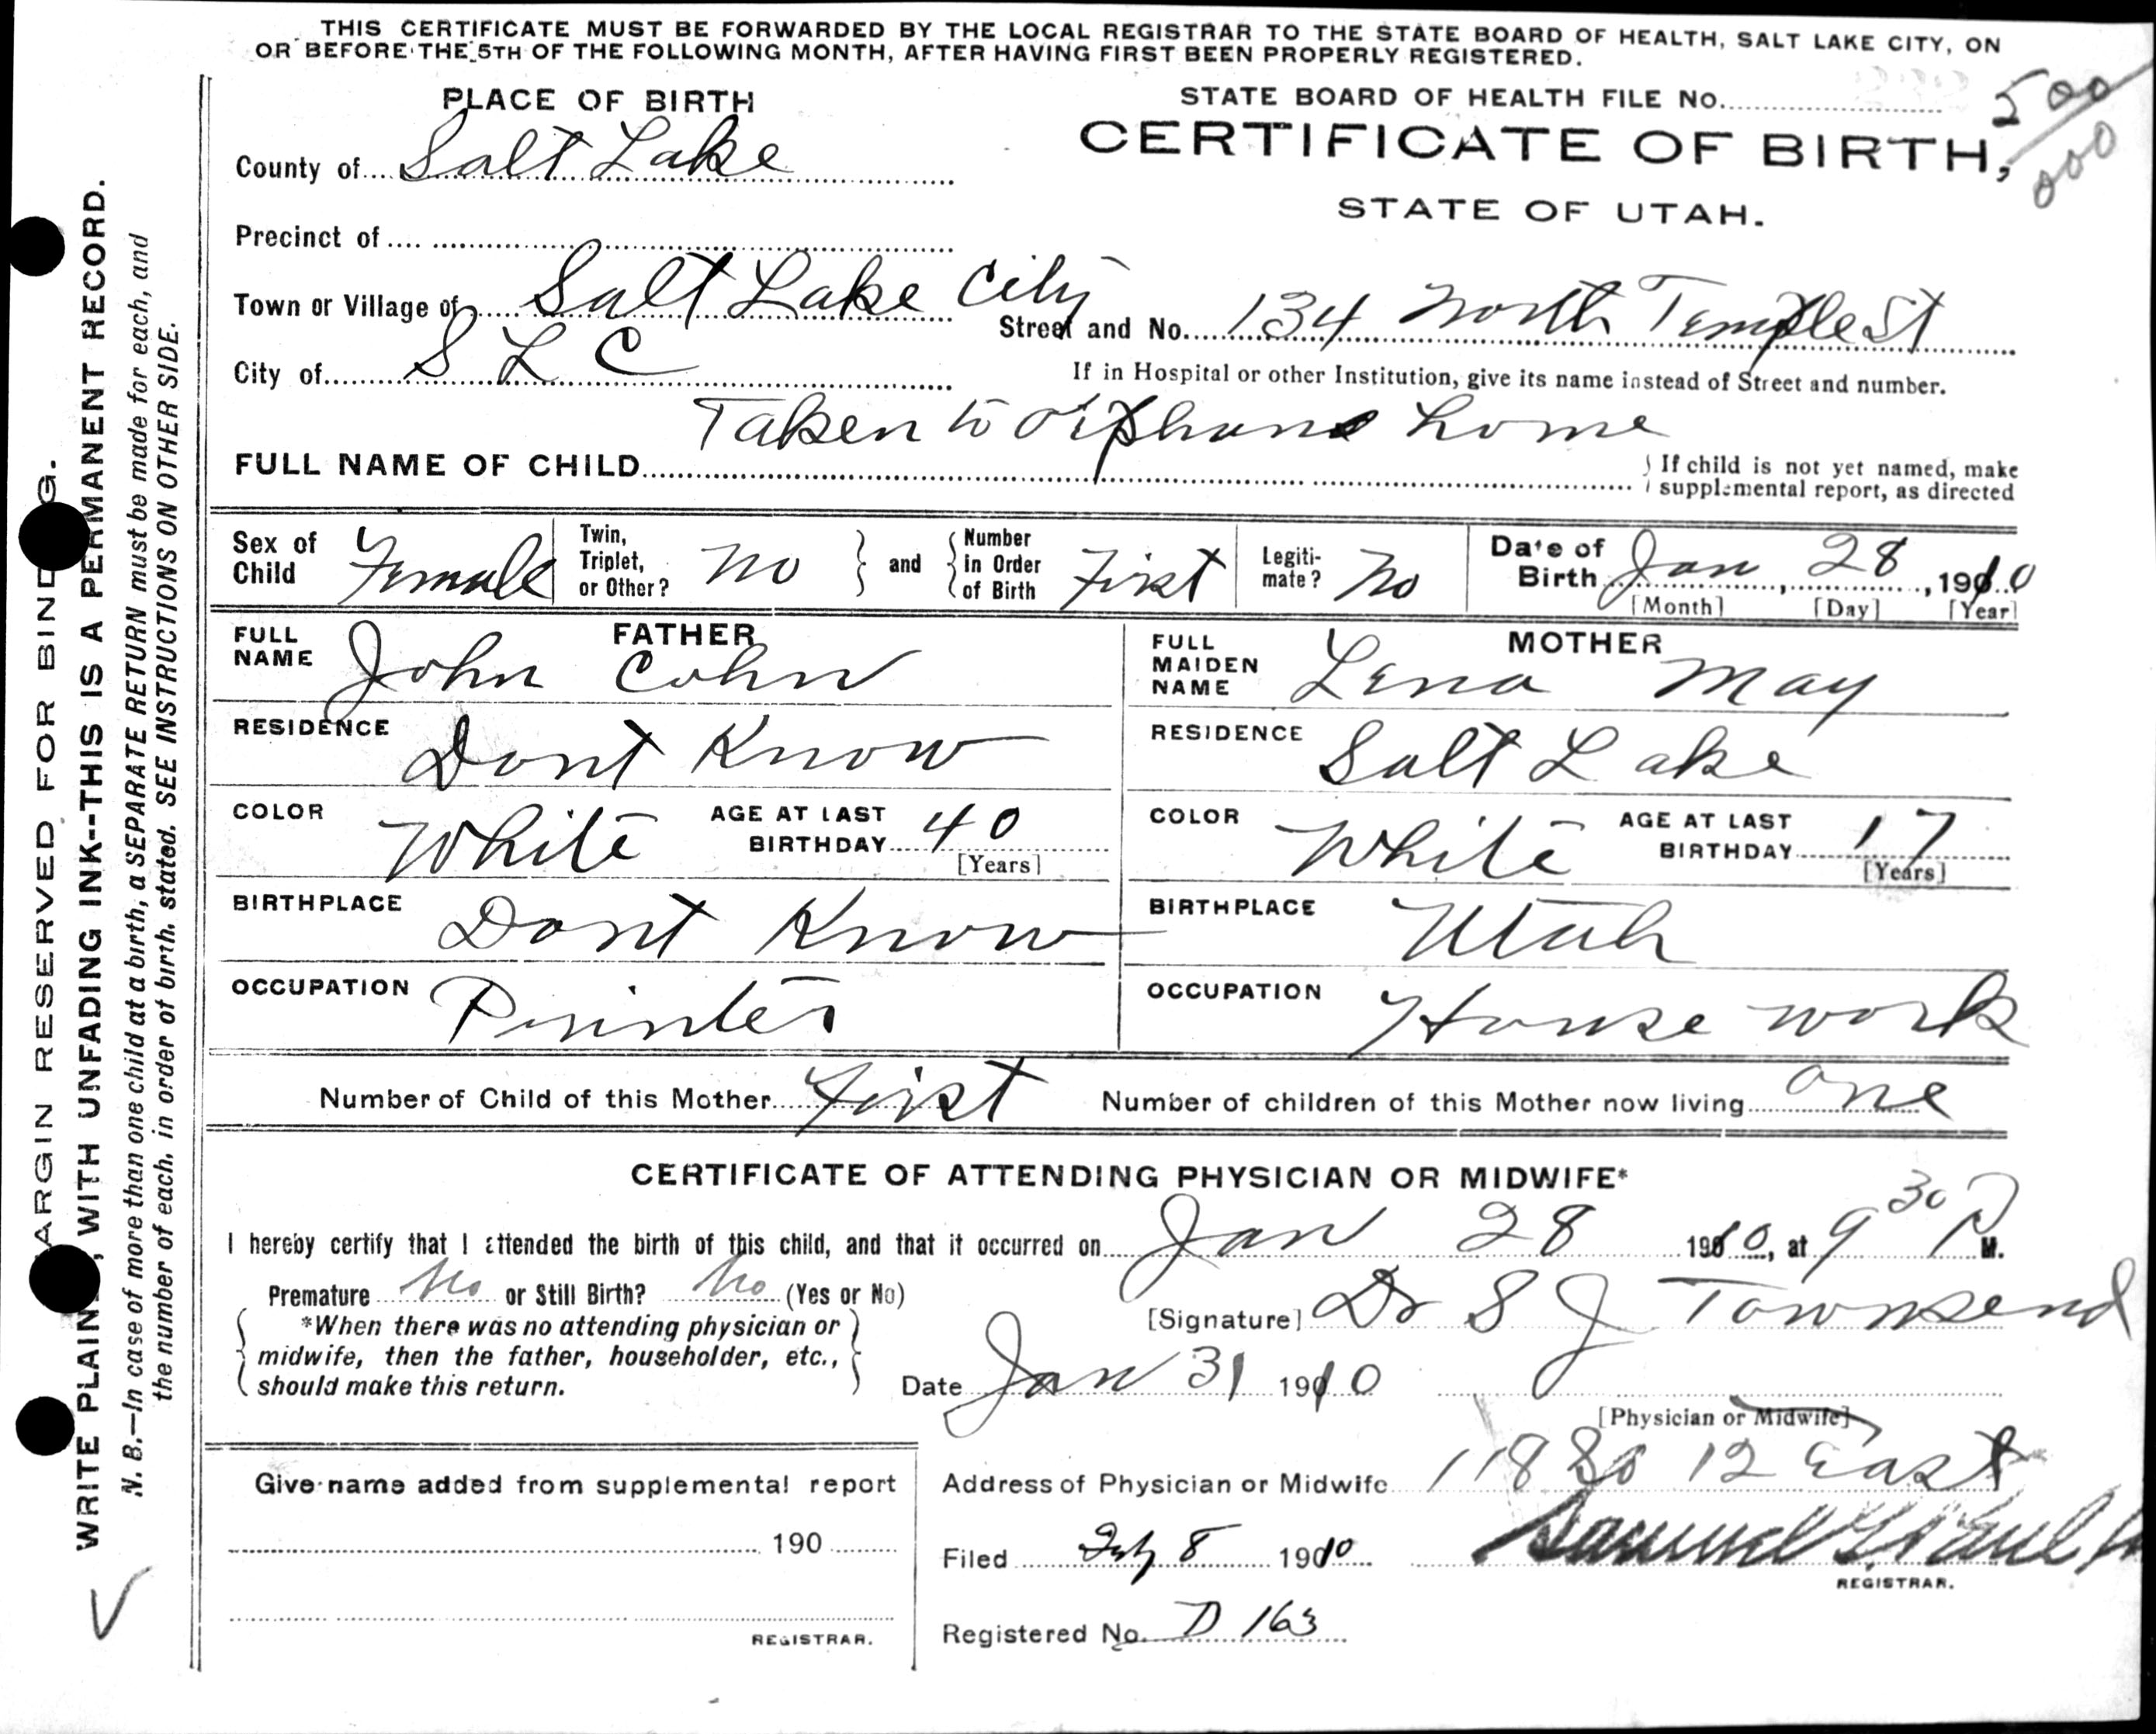 THIS CERTIFICATE MUST BE FORWARDED BY THE LOCAL REGISTRAR TO THE STATE BOARD OF HEALTH, SALT LAKE CITY, ON
OR BEFORE THE 5TH OF THE FOLLOWING MONTH, AFTER HAVING FIRST BEEN PROPERLY REGISTERED.
PLACE OF BIRTH
STATE BOARD OF HEALTH FILE No. 500
000
CERTIFICATE OF BIRTH,
STATE OF UTAH.
County of Salt Lake
Precinct of
Town or Village of Salt Lake City
Street and No. 134 North Temple St
City of S L C
If in Hospital or other Institution, give its name instead of Street and number.
Taken to Orphans home
FULL NAME OF CHILD
If child is not yet named, make
supplemental report, as directed
Sex of Child Female
Twin, Triplet, or Other? No
and
Number in Order of Birth First
Legitimate? No
Date of Birth Jan 28, 1910
[Month] [Day] [Year]
FATHER
FULL NAME John Cohn
RESIDENCE Dont Know
COLOR White AGE AT LAST BIRTHDAY 40
[Years]
BIRTHPLACE Dont Know
OCCUPATION Printer
MOTHER
FULL MAIDEN NAME Lena May
RESIDENCE Salt Lake
COLOR White AGE AT LAST BIRTHDAY 17
[Years]
BIRTHPLACE Utah
OCCUPATION House work
Number of Child of this Mother First Number of children of this Mother now living one
CERTIFICATE OF ATTENDING PHYSICIAN OR MIDWIFE*
I hereby certify that I attended the birth of this child, and that it occurred on Jan 28 1910, at 9 30 P M.
Premature No or Still Birth? No (Yes or No)
*When there was no attending physician or
midwife, then the father, householder, etc.,
should make this return.
[Signature] Dr S J Townsend
Date Jan 31 1910
[Physician or Midwife]
Give name added from supplemental report
190
REGISTRAR.
Address of Physician or Midwife 118 So 12 East
Filed Feb 8 1910
REGISTRAR.
Registered No. D 163
MARGIN RESERVED FOR BINDING.
WRITE PLAINLY, WITH UNFADING INK--THIS IS A PERMANENT RECORD.
N. B.—In case of more than one child at a birth, a SEPARATE RETURN must be made for each, and
the number of each, in order of birth, stated. SEE INSTRUCTIONS ON OTHER SIDE.